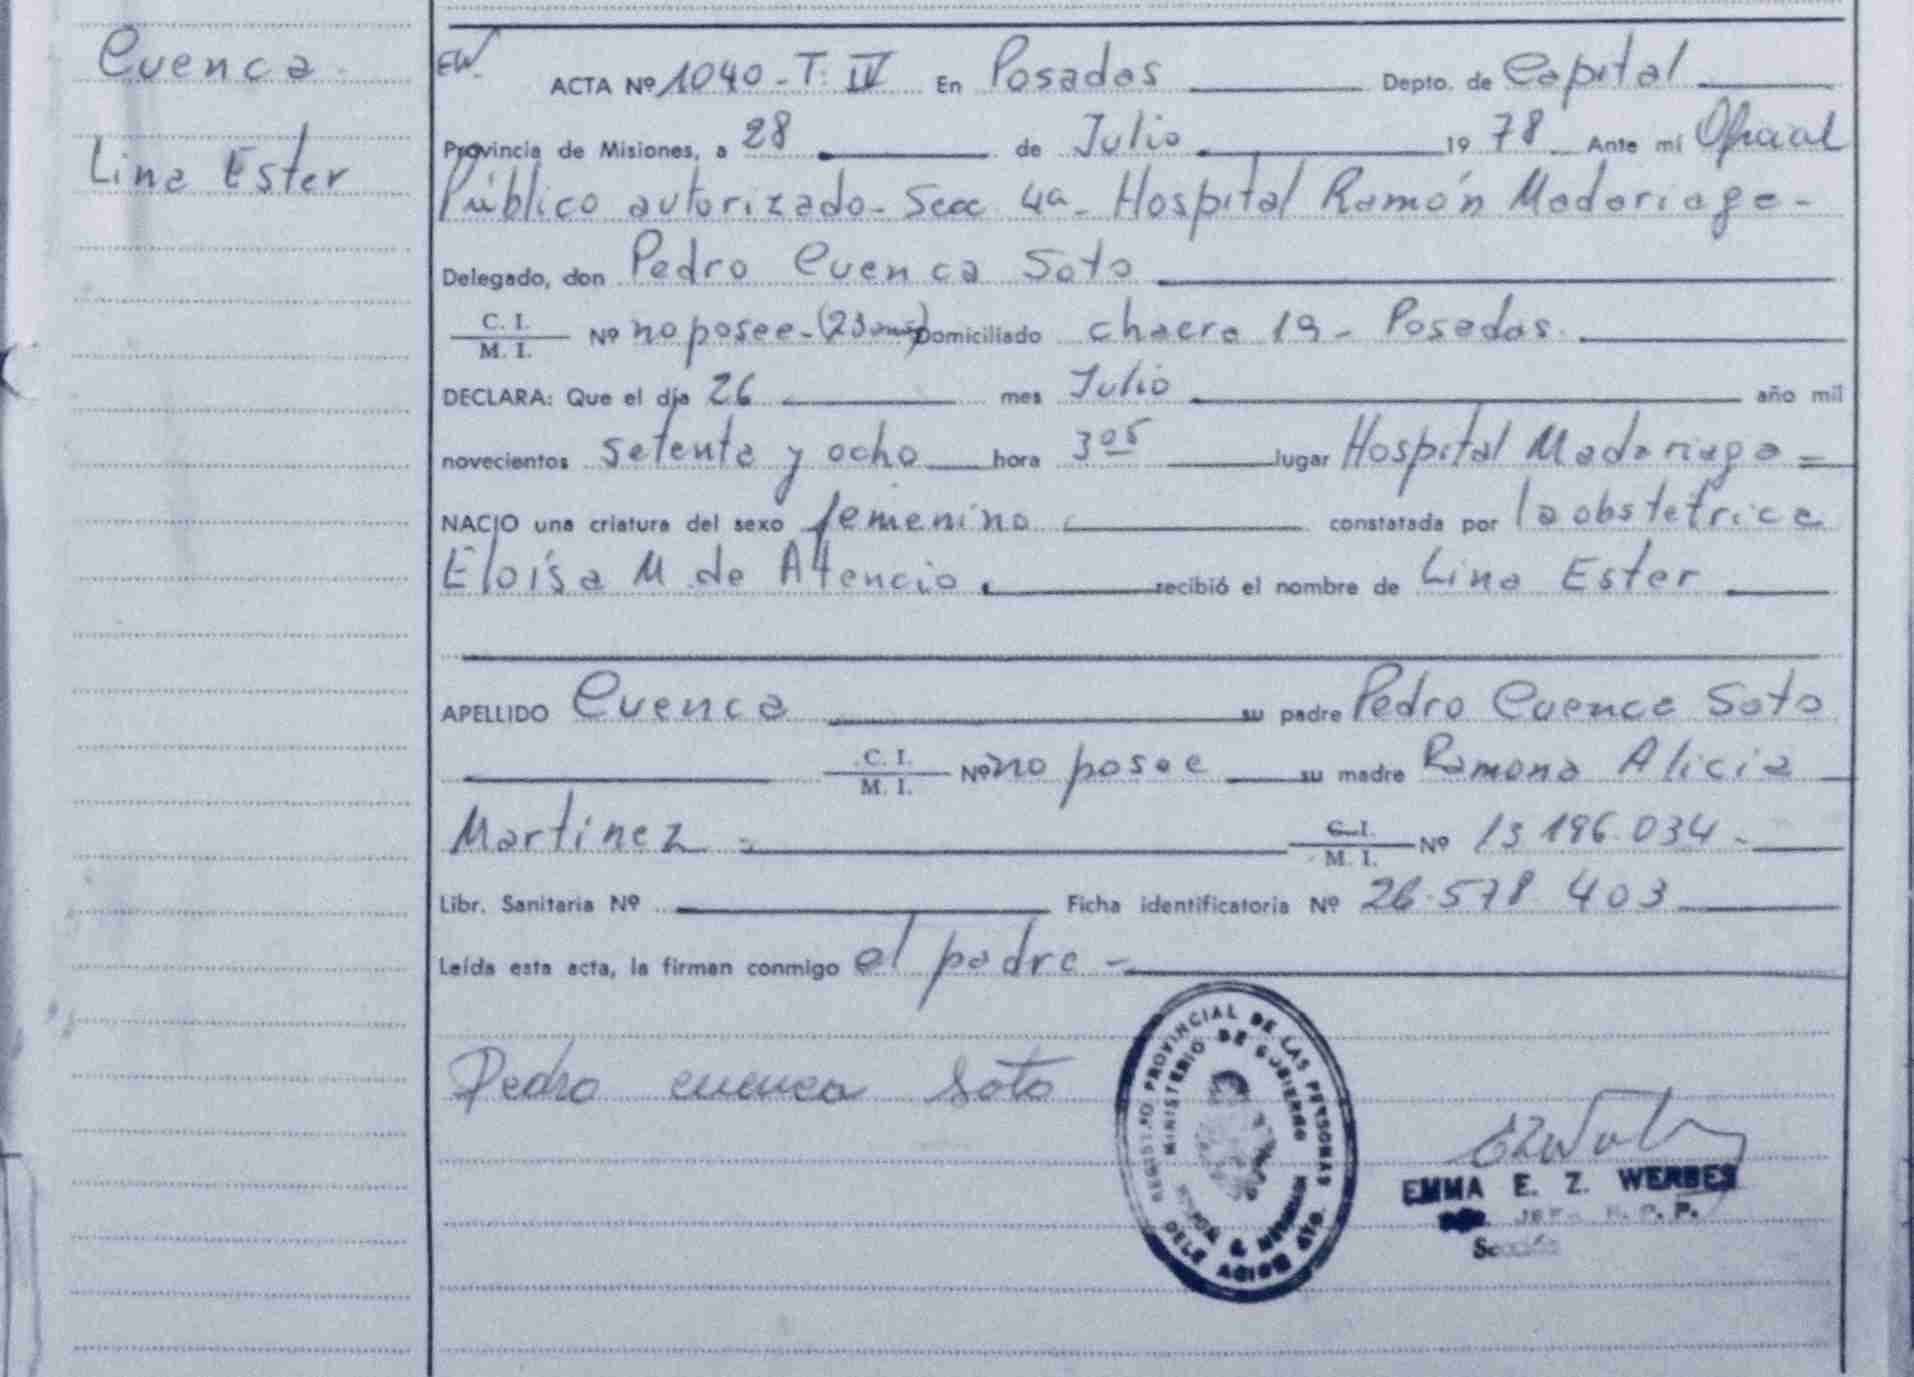 Cuenca
Lina Ester
EW. ACTA Nº 1040 - T. IV En Posadas Depto. de Capital
Provincia de Misiones, a 28 de Julio 1978 Ante mí Oficial
Público autorizado - Secc 4ª - Hospital Ramón Madariaga -
Delegado, don Pedro Cuenca Soto
C. I. / M. I. Nº no posee - (23 años) Domiciliado chacra 19 - Posadas.
DECLARA: Que el día 26 mes Julio año mil
novecientos setenta y ocho hora 3 05 lugar Hospital Madariaga =
NACIO una criatura del sexo femenino constatada por la obstetrice
Eloísa M. de Atencio. recibió el nombre de Lina Ester
APELLIDO Cuenca su padre Pedro Cuenca Soto
C. I. / M. I. Nº no posee su madre Ramona Alicia
Martínez - C. I. / M. I. Nº 13 196.034 -
Libr. Sanitaria Nº Ficha identificatoria Nº 26.578 403
Leída esta acta, la firman conmigo el padre -
Pedro cuenca Soto
PROVINCIAL DE LAS PERSONAS
MINISTERIO DE GOBIERNO
EMMA E. Z. WERBES
JEFE R. P. P.
Sección